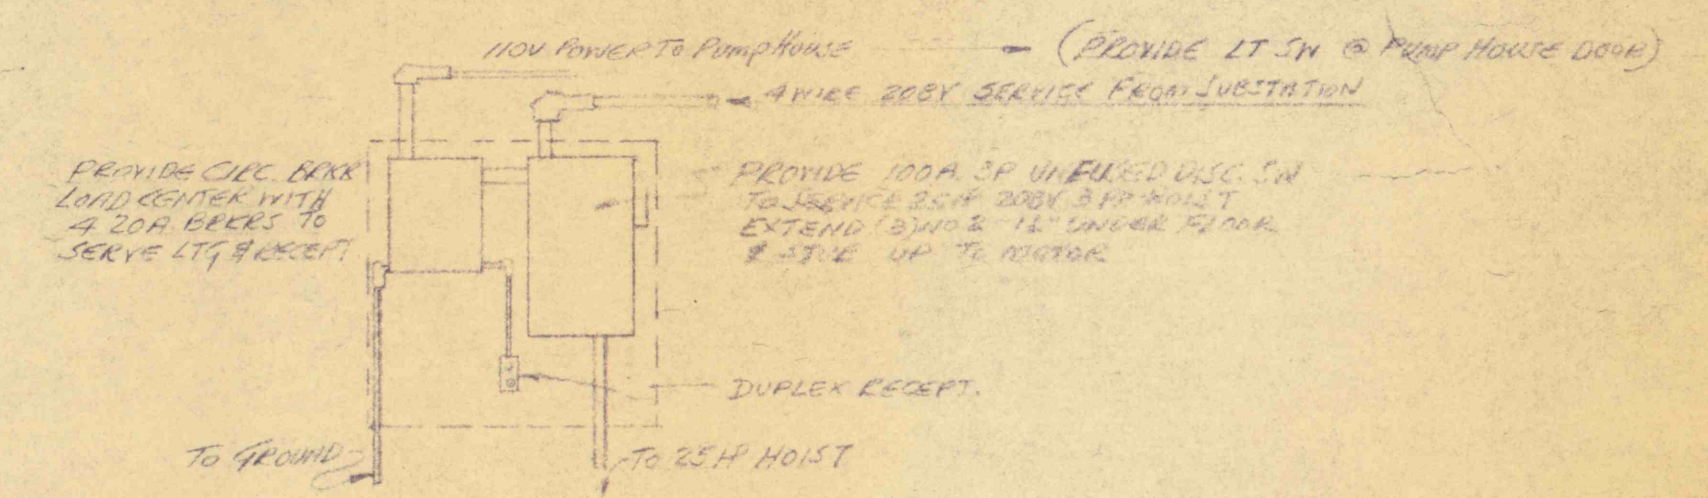 110V POWER TO PUMP HOUSE
(PROVIDE LT SW @ PUMP HOUSE DOOR)
4 WIRE 208V SERVICE FROM SUBSTATION
PROVIDE CIRC. BRKR
LOAD CENTER WITH
4 20A BRKRS TO
SERVE LTG & RECEPT.
PROVIDE 100A. 3P UNFUSED DISC. SW
TO SERVICE 25HP 208V 3PH HOIST
EXTEND (3) NO 2 - 1½" UNDER FLOOR
& STUB UP TO MOTOR
DUPLEX RECEPT.
TO GROUND
TO 25 HP HOIST